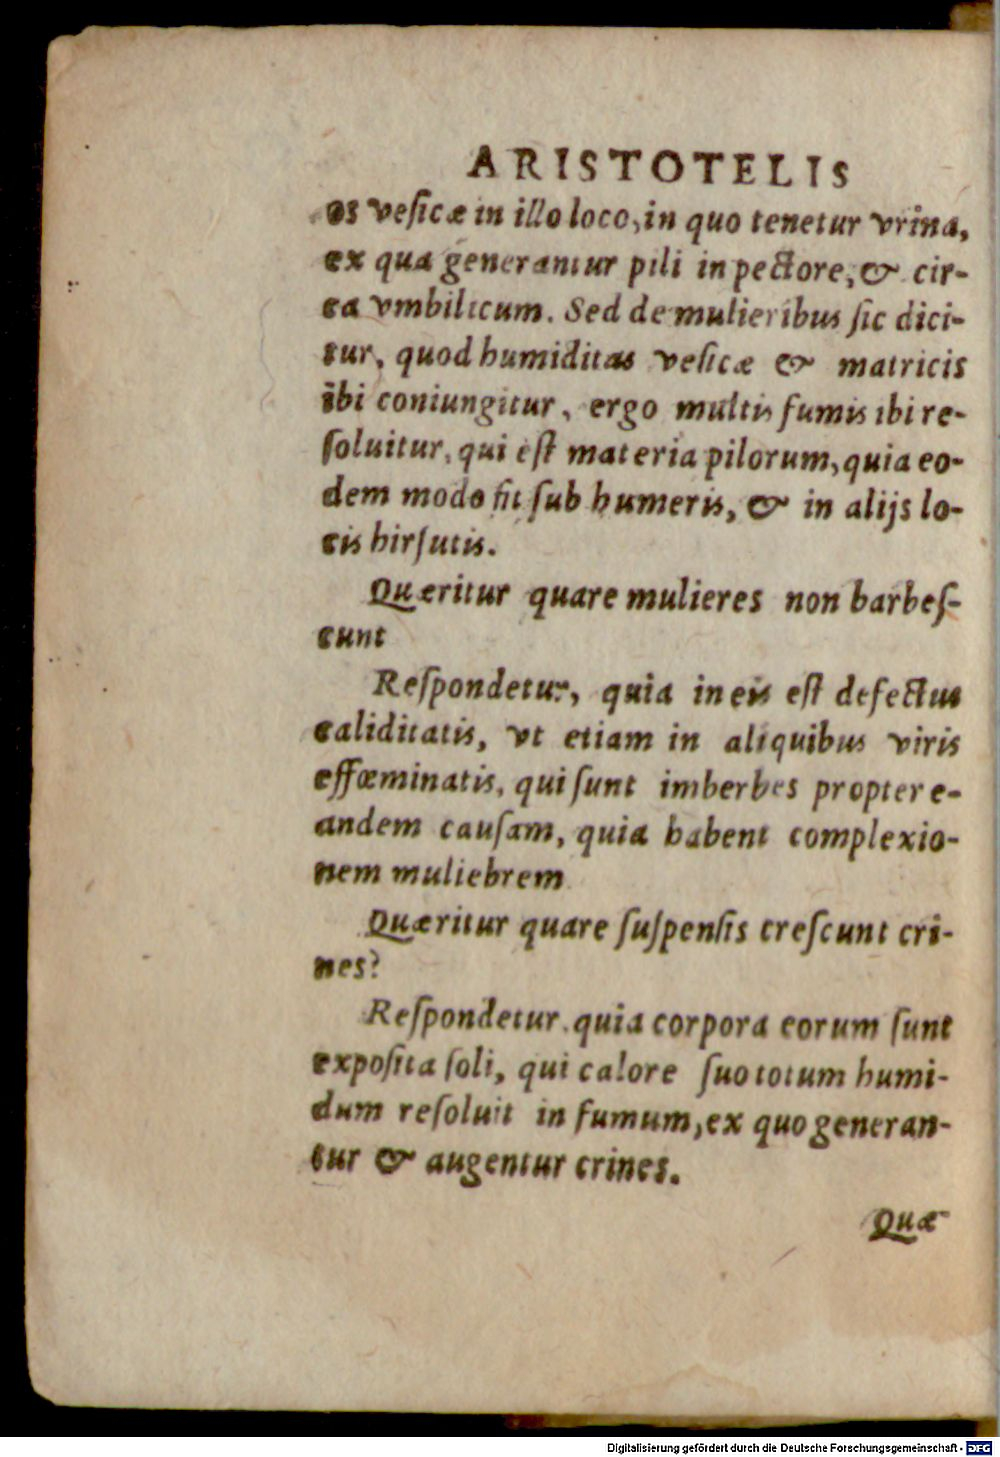 ARISTOTELIS
os vesicæ in illo loco, in quo tenetur vrina,
ex qua generantur pili in pectore, & cir-
ca vmbilicum. Sed de mulieribus sic dici-
tur, quod humiditas vesicæ & matricis
ibi coniungitur, ergo multis fumis ibi re-
soluitur, qui est materia pilorum, quia eo-
dem modo fit sub humeris, & in alijs lo-
cis hirsutis.
Quæritur quare mulieres non barbes-
cunt
Respondetur, quia in eis est defectus
caliditatis, vt etiam in aliquibus viris
effœminatis, qui sunt imberbes propter e-
andem causam, quia habent complexio-
nem muliebrem
Quæritur quare suspensis crescunt cri-
nes?
Respondetur. quia corpora eorum sunt
exposita soli, qui calore suo totum humi-
dum resoluit in fumum, ex quo generan-
tur & augentur crines.
Quæ-
Digitalisierung gefördert durch die Deutsche Forschungsgemeinschaft - DFG